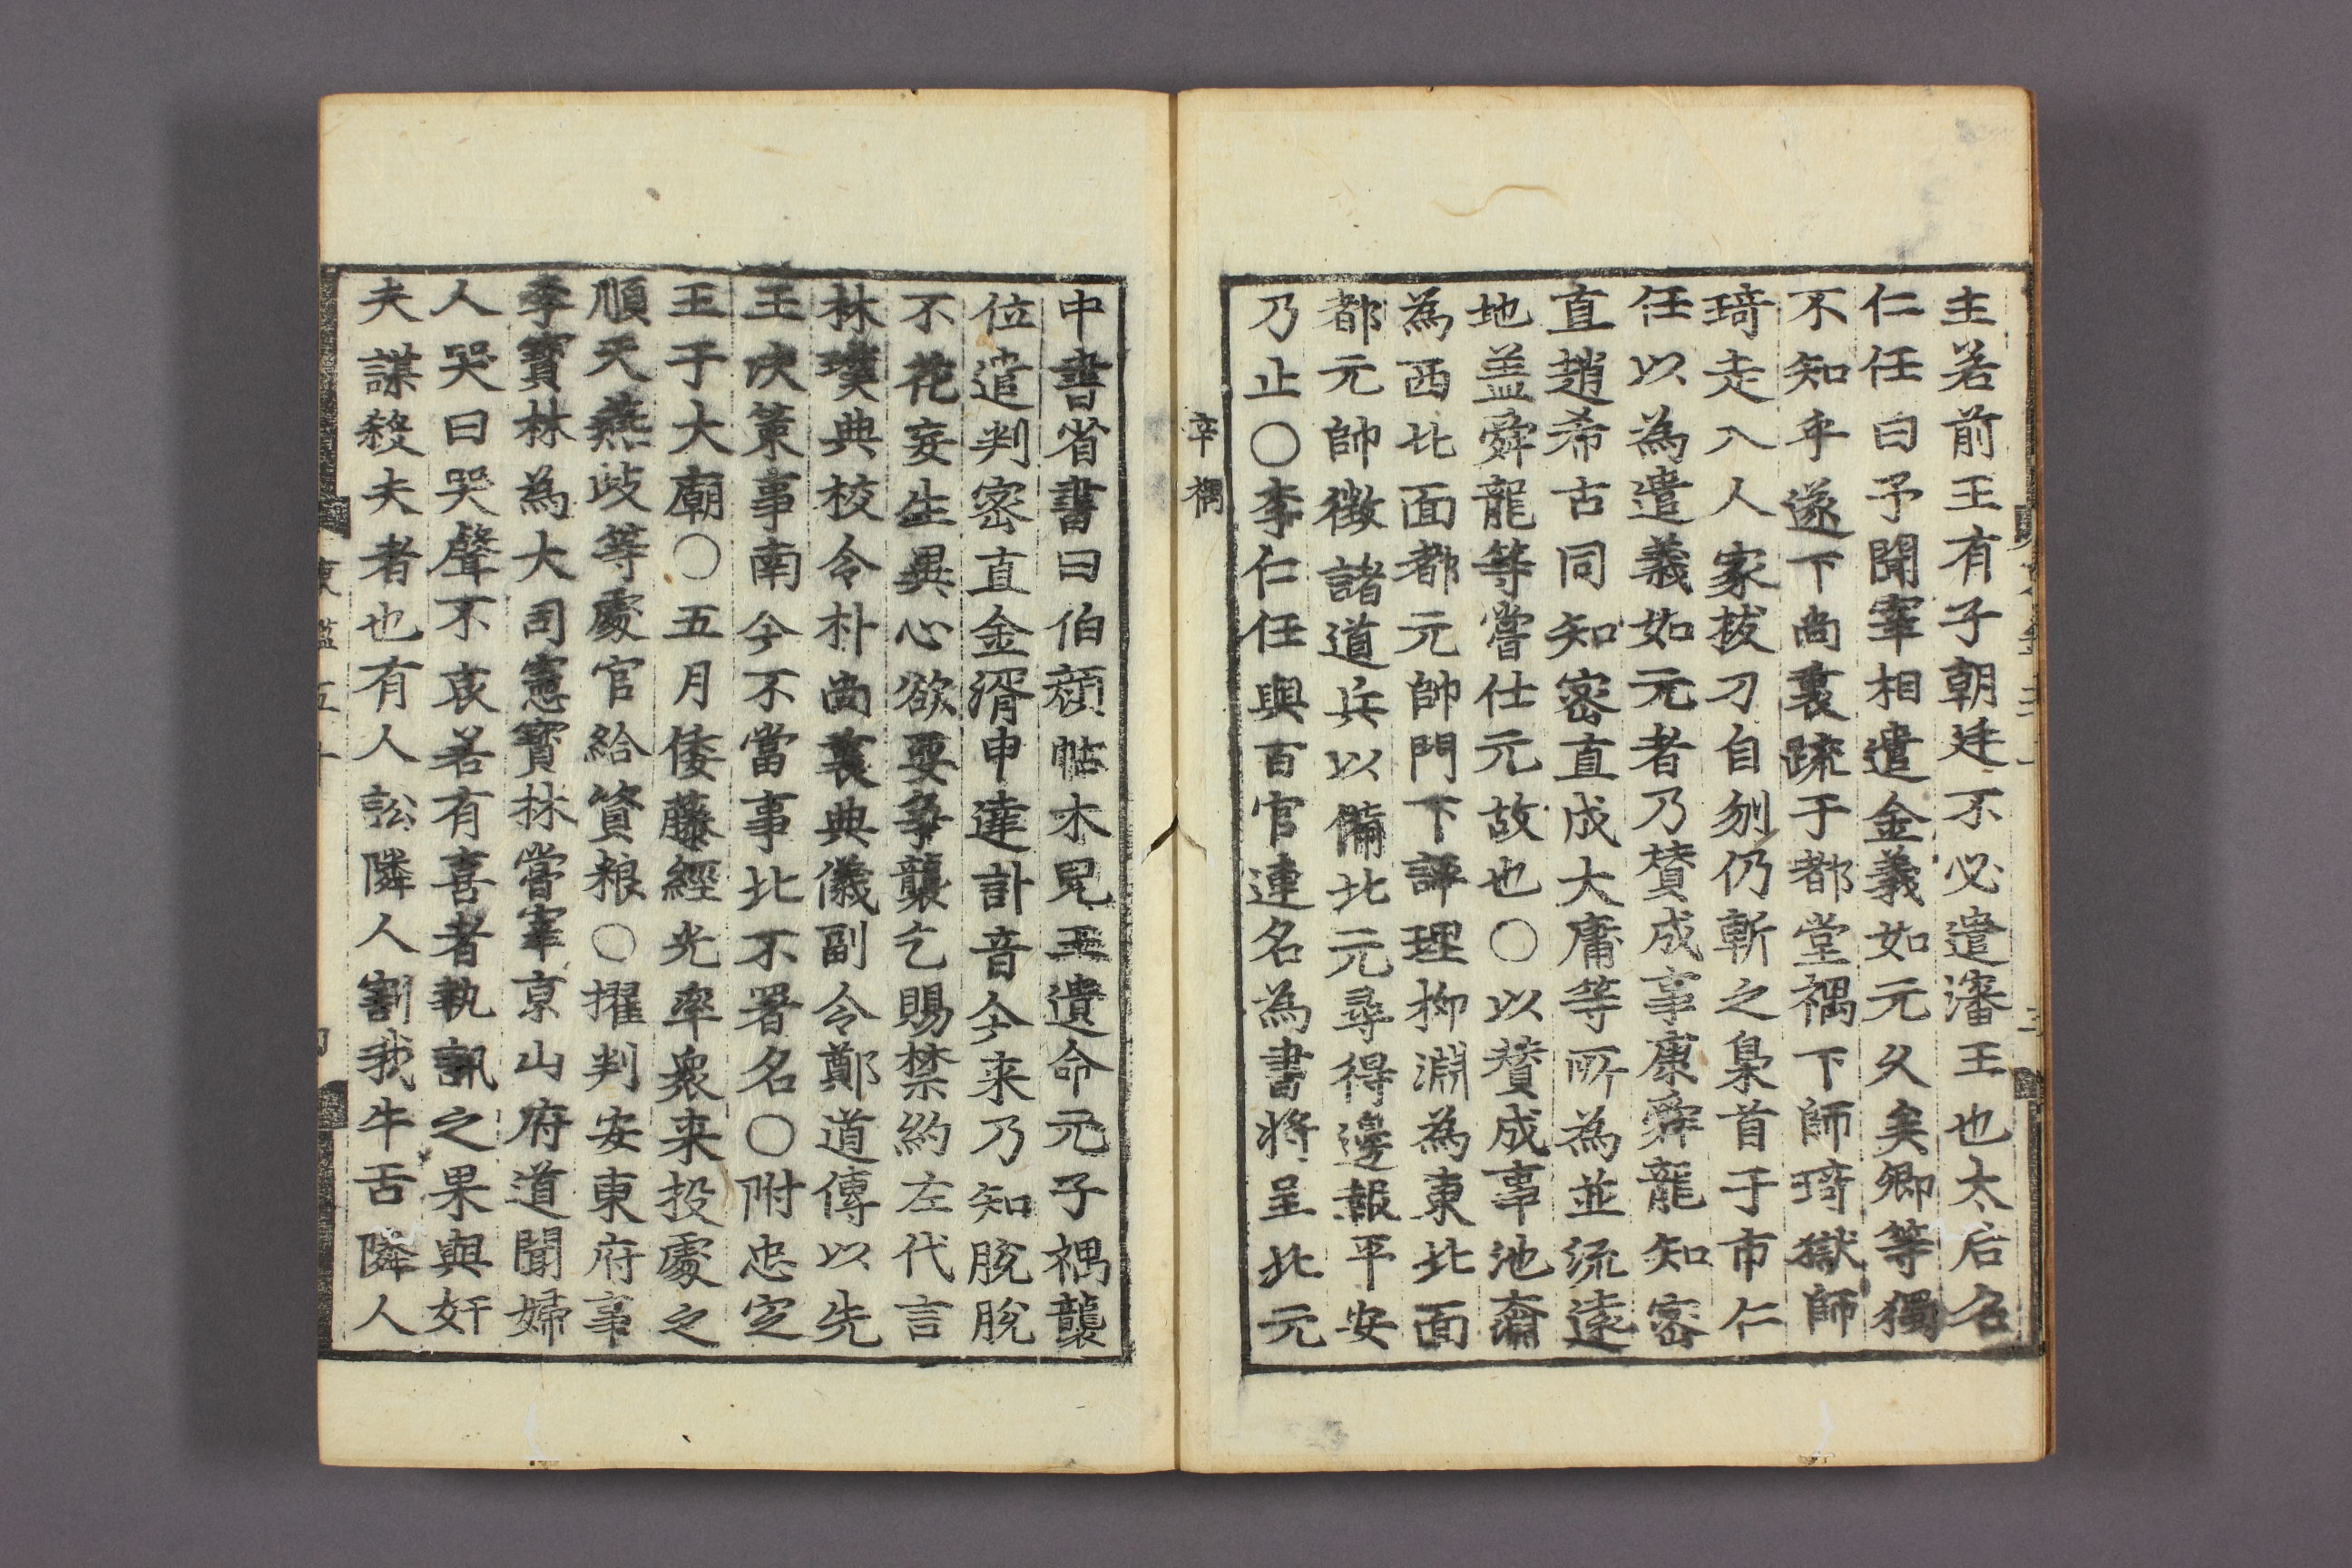 主若前王有子朝廷不必遣瀋王也太后召
仁任曰予聞宰相遣金義如元久矣卿等獨
不知乎遂下尚衷䟽于都堂禑下師琦獄師
琦走入人家拔刀自刎仍斬之梟首于市仁
任以為遣義如元者乃賛成事康舜龍知密
直趙希古同知密直成大庸等所為並流遠
地盖舜龍等嘗仕元故也○以賛成事池奫
為西北面都元帥門下評理柳淵為東北面
都元帥徴諸道兵以備北元尋得邊報平安
乃止○李仁任與百官連名為書将呈北元
辛禑
中書省書曰伯顔帖木児王遺命元子禑襲
位遣判密直金湑申達訃音今来乃知脫脫
不花妄生異心欲要爭襲乞賜禁約左代言
林樸典校令朴尚衷典儀副令鄭道傳以先
王决策事南今不當事北不署名○附忠定
王于大廟○五月倭藤經光率衆来投處之
順天燕歧等處官給資粮○擢判安東府事
李寳林為大司憲寳林嘗宰京山府道聞婦
人哭曰哭聲不哀若有喜者執訊之果與奸
夫謀殺夫者也有人訟隣人割我牛舌隣人
東 五十